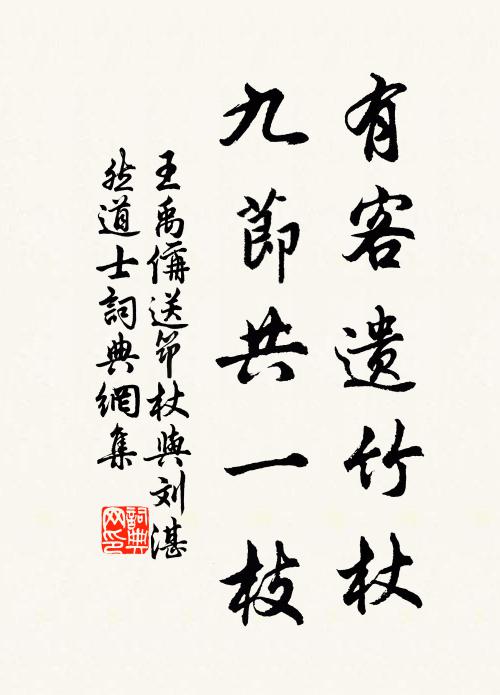 有客遺竹杖
九節共一枝
王禹偁送笻杖與刘湛
然道士詞典網集
詞典
网印